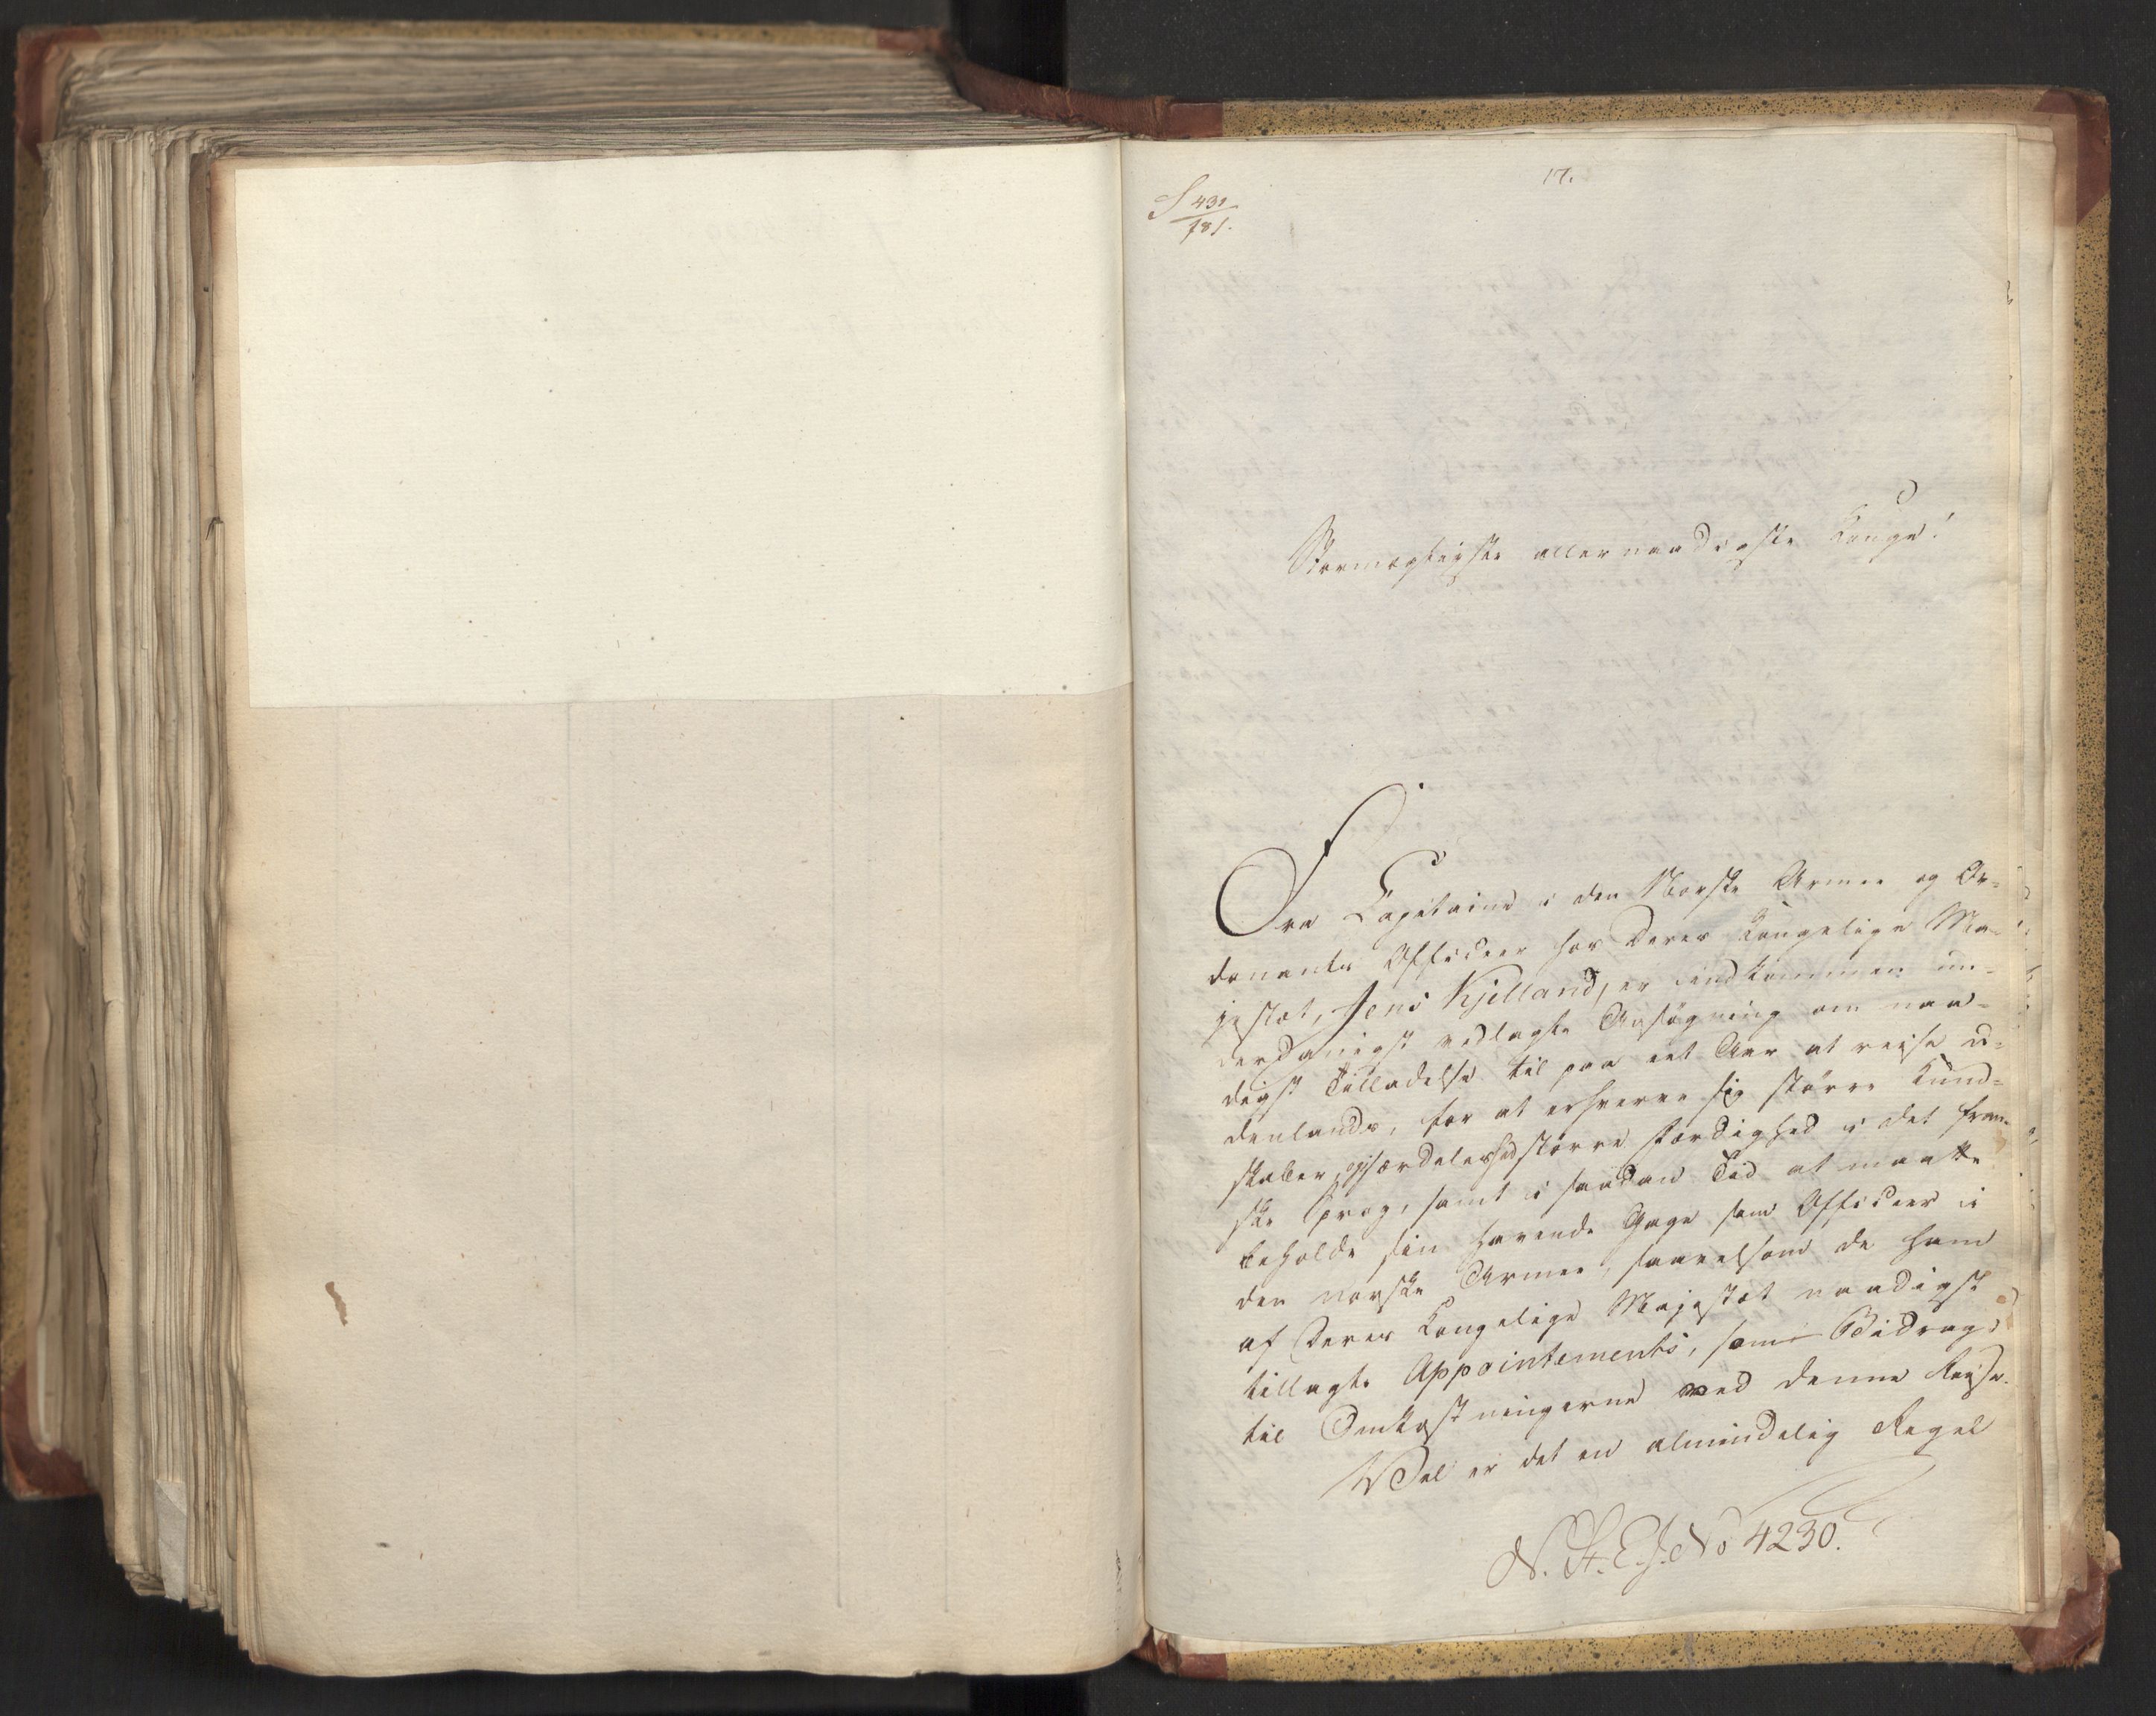 17.
S 431/781.
Stormægtigste allernaadigste Konge!
Fra Capitaine i den Norske Armee og Or-
donants Officeer hos Deres Kongelige Ma-
jestæt, Jens Kjelland, er indkommen un-
derdanigst vedlagte Ansøgning om naa-
digst Tilladelse til paa eet Aar at reise u-
denlands, for at erhverve sig større Kund-
skaber, og særdeleshed større Færdighed i det fran-
ske Sprog, samt i saadan Tid at maatte
beholde sin havende Gage som Officeer i
den norske Armee, saavelsom de ham
af Deres Kongelige Majestæt naadigst
tillagte Appointements, som Bidrag
til Omkostningerne ved denne Reise.
Vel er det en almindelig Regel
N. St. E. J. No 4230.